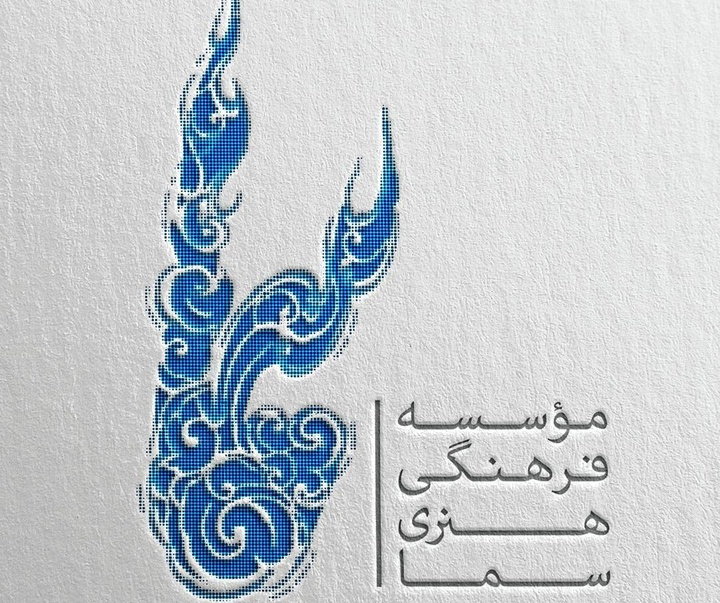 مؤسسه
فرهنگی
هنری
سما